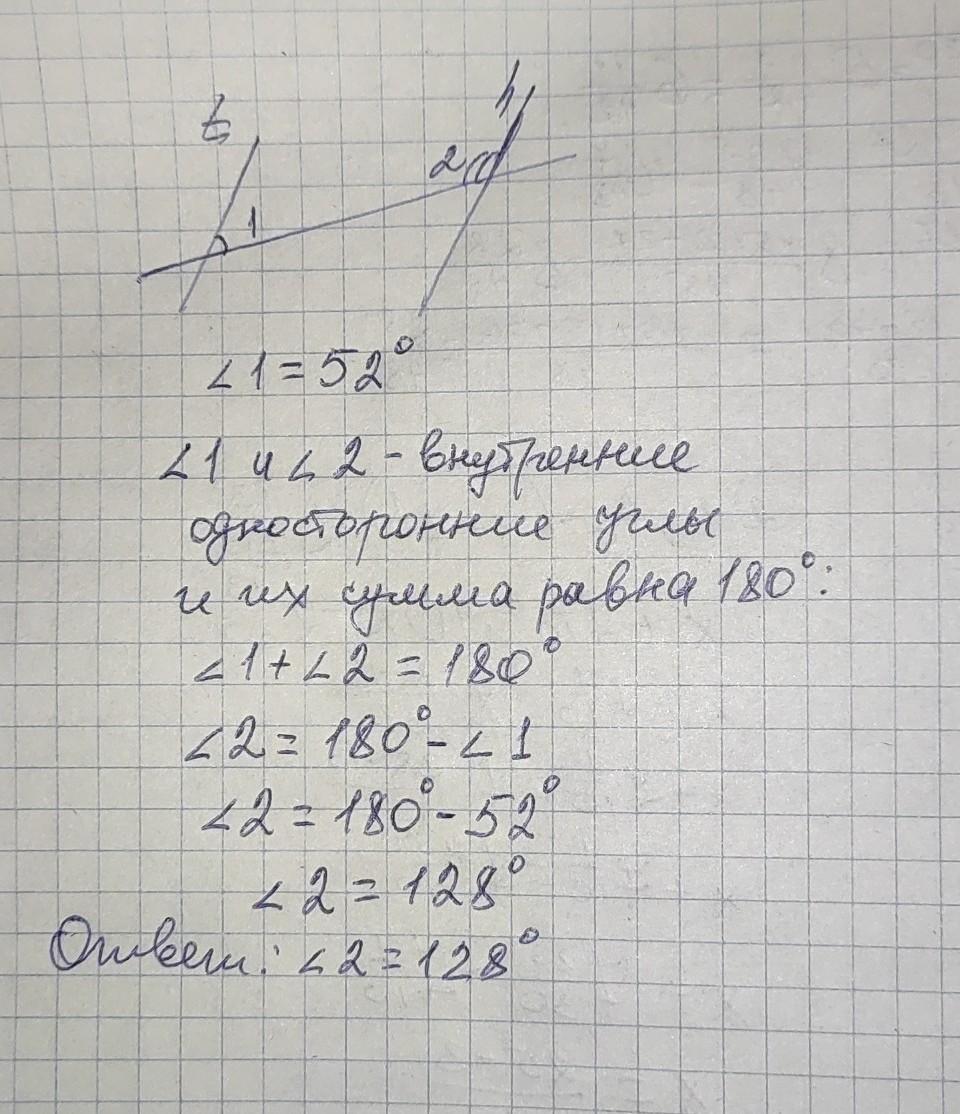 t
h
2
1
∠1 = 52°
∠1 и ∠2 - внутренние
односторонние углы
и их сумма равна 180°:
∠1 + ∠2 = 180°
∠2 = 180° - ∠1
∠2 = 180° - 52°
∠2 = 128°
Ответ: ∠2 = 128°